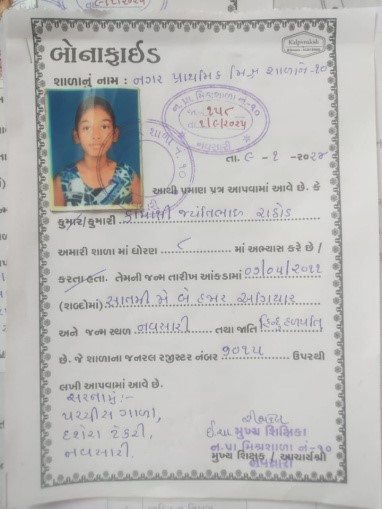 Kalpvruksh
બોનાફાઈડ
શાળાનું નામ : નગર પ્રાથમિક મિશ્ર શાળાનં-૧૦
ન.પ્રા.મિશ્રશાળા નં-૧૦
૧૫૮
નવસારી
તા. ૯-૧-૨૦૨૫
આથી પ્રમાણ પત્ર આપવામાં આવે છે. કે
કુમાર/કુમારી જયંતિભાઈ રાઠોડ
અમારી શાળા માં ધોરણ ૮ માં અભ્યાસ કરે છે /
કરતા હતા. તેમની જન્મ તારીખ આંકડામાં ૦૭/૦૫/૨૦૧૧
(શબ્દોમાં) સાતમી મે બે હજાર અગિયાર
અને જન્મ સ્થળ નવસારી તથા જાતિ હિન્દુ હળપતિ
છે. જે શાળાના જનરલ રજીસ્ટર નંબર ૧૦૧૫ ઉપરથી
લખી આપવામાં આવે છે.
સરનામું:-
પચ્ચીસ ગાળા,
દશેરા ટેકરી,
નવસારી.
ઈ.ચા મુખ્ય શિક્ષિકા
ન.પ્રા.મિશ્રશાળા નં-૧૦
મુખ્ય શિક્ષક / આચાર્યશ્રી
નવસારી